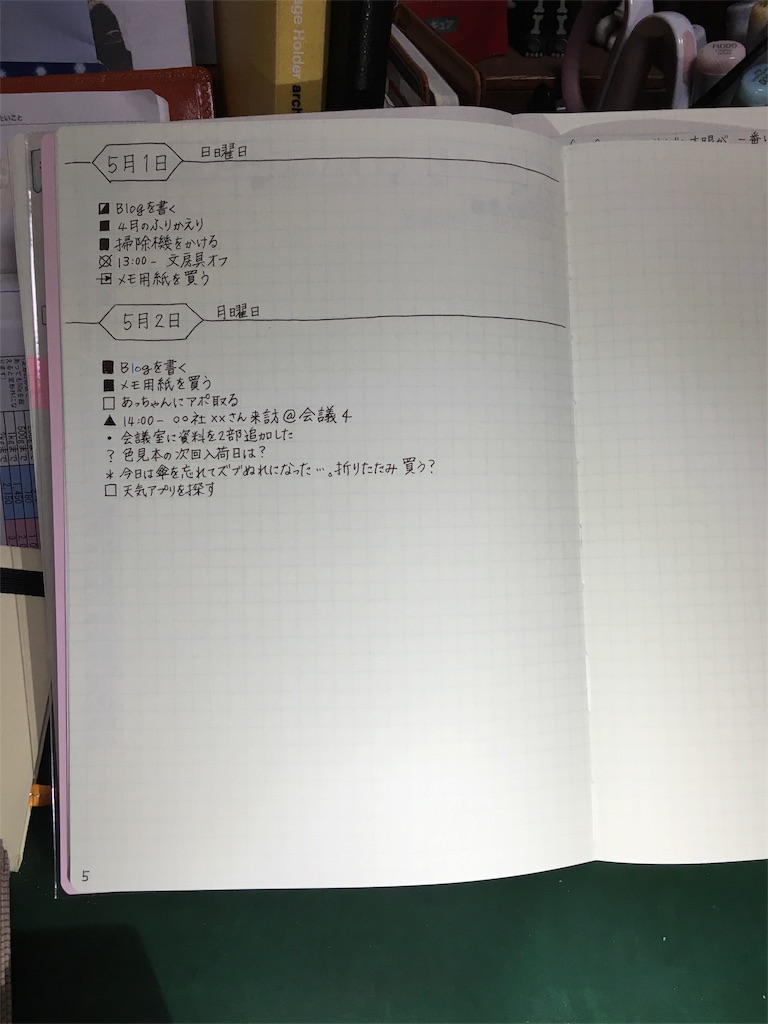 age Holder arch
キュア
たいこと
R000
5月1日 日曜日
◪ Blogを書く
■ 4月のふりかえり
■ 掃除機をかける
☒ 13:00- 文房具オフ
メモ用紙を買う
5月2日 月曜日
■ Blogを書く
■ メモ用紙を買う
□ あっちゃんにアポ取る
▲ 14:00- ○○社××さん来訪@会議4
・ 会議室に資料を2部追加した
? 色見本の次回入荷日は?
* 今日は傘を忘れてズブぬれになった…。折りたたみ買う?
□ 天気アプリを探す
5